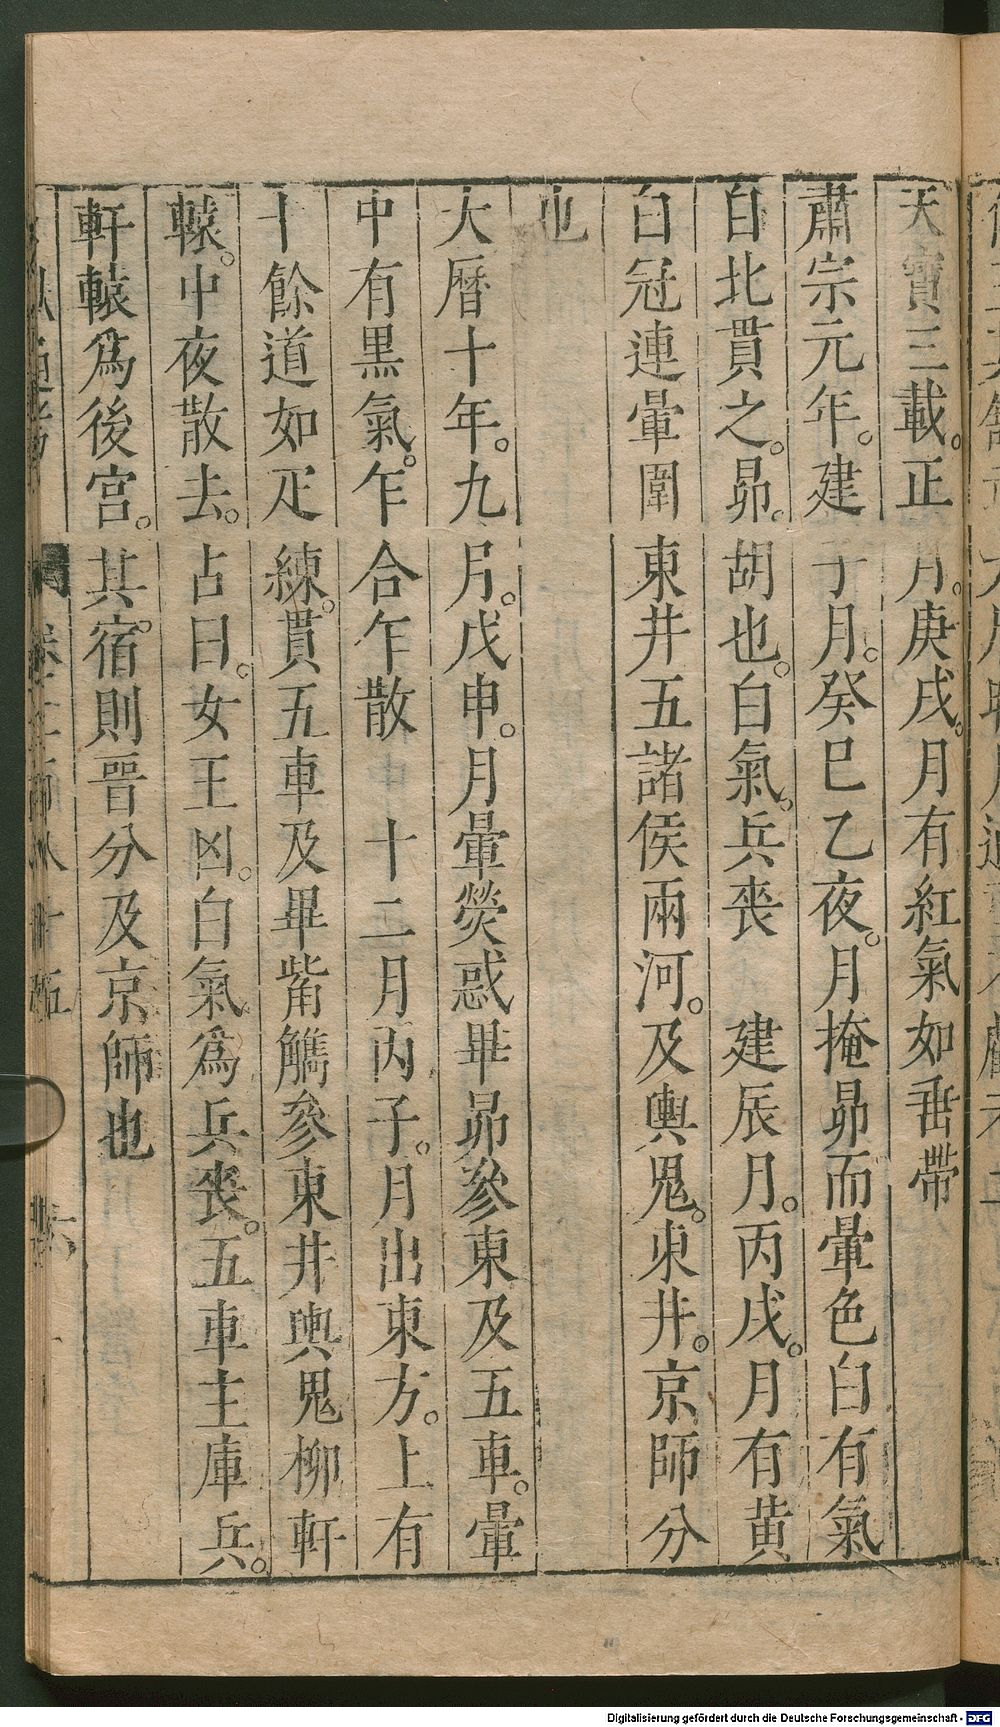 天寶三載。正月。庚戌。月有紅氣如垂帶
肅宗元年。建子月。癸巳乙夜。月掩昴而暈色白有氣
自北貫之。昴。胡也。白氣。兵喪　建辰月。丙戌。月有黃
白冠連暈圍東井五諸侯兩河。及輿鬼。東井。京師分
也
大曆十年。九月。戊申。月暈熒惑畢昴參東及五車。暈
中有黑氣。乍合乍散　十二月丙子。月出東方。上有
十餘道如疋練。貫五車及畢觜觿參東井輿鬼柳軒
轅。中夜散去。占曰。女王凶。白氣爲兵喪。五車主庫兵。
軒轅爲後宮。其宿。則晉分及京師也
Digitalisierung gefördert durch die Deutsche Forschungsgemeinschaft - DFG